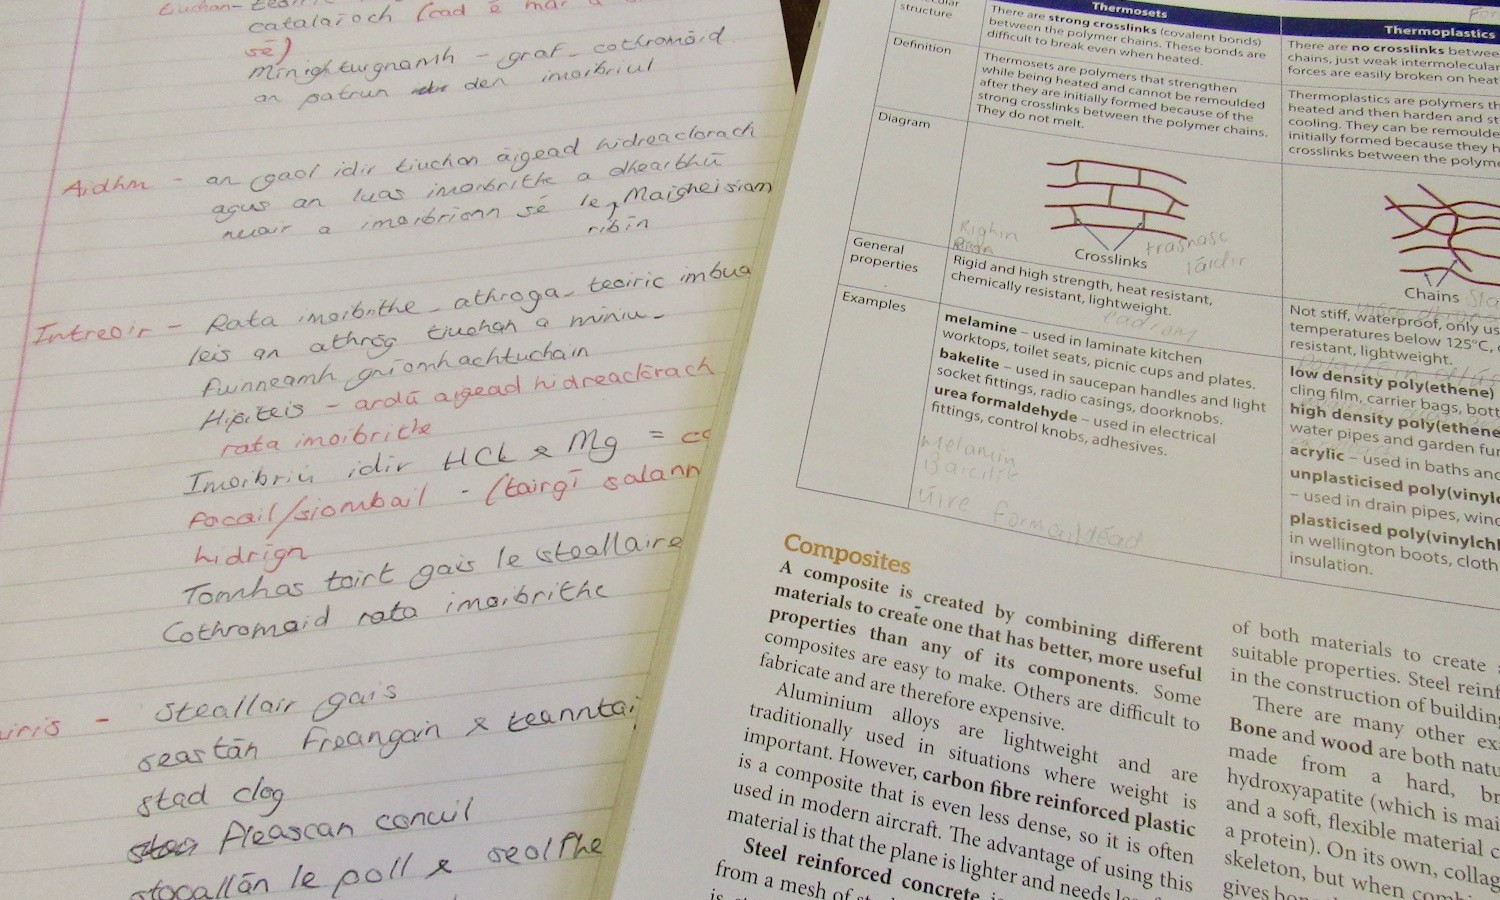 catalaíoch (cad é mar a
sé)
Mínigh turgnamh - graf - cothromóid
an patrun den imoibriul
Aidhm - an gaol idir tiuchan aigead hidreaclorach
agus an luas imoibrithe a dhearthú
nuair a imoibrionn sé le Maigheisiam
ribín
Intreoir - Rata imoibrithe - athroga - teoiric imbua
leis an athróg tiuchan a míniu -
fuinneamh gníomhachtuchain
Hipiteis - ardú aigead hidreaclórach
rata imoibrithe
Imoibriú idir HCl & Mg =
focail/siombail - (táirgí salann
hidrígn
Tomhas táirt gáis le steallaire
Cothromaid rata imoibrithe
steallair gáis
seastán freangán & teanntaí
stad clog
fleascan conuil
stopallán le poll &
structure
Thermosets
There are strong crosslinks (covalent bonds)
between the polymer chains. These bonds are
difficult to break even when heated.
Thermoplastics
There are no crosslinks betwee
chains, just weak intermolecular
forces are easily broken on heat
Definition
Thermosets are polymers that strengthen
while being heated and cannot be remoulded
after they are initially formed because of the
strong crosslinks between the polymer chains.
They do not melt.
Thermoplastics are polymers th
heated and then harden and st
cooling. They can be remoulde
initially formed because they h
crosslinks between the polyme
Diagram
Righin
Crosslinks
trasnasc
láidir
Chains
General
properties
Rigid and high strength, heat resistant,
chemically resistant, lightweight.
eadrom
Not stiff, waterproof, only us
temperatures below 125°C,
resistant, lightweight.
Examples
melamine – used in laminate kitchen
worktops, toilet seats, picnic cups and plates.
bakelite – used in saucepan handles and light
socket fittings, radio casings, doorknobs.
urea formaldehyde – used in electrical
fittings, control knobs, adhesives.
Melamin
Báicilít
Úire formaildéad
low density poly(ethene)
cling film, carrier bags, bott
high density poly(ethene
water pipes and garden fur
acrylic – used in baths and
unplasticised poly(vinylc
– used in drain pipes, wind
plasticised poly(vinylchl
in wellington boots, cloth
insulation.
Composites
A composite is created by combining different
materials to create one that has better, more useful
properties than any of its components. Some
composites are easy to make. Others are difficult to
fabricate and are therefore expensive.
Aluminium alloys are lightweight and are
traditionally used in situations where weight is
important. However, carbon fibre reinforced plastic
is a composite that is even less dense, so it is often
used in modern aircraft. The advantage of using this
material is that the plane is lighter and needs
Steel reinforced concrete
from a mesh of
of both materials to create
suitable properties. Steel reinf
in the construction of building
There are many other ex
Bone and wood are both natu
made from a hard, br
hydroxyapatite (which is mai
and a soft, flexible material c
a protein). On its own, collag
skeleton, but when comb
gives bon